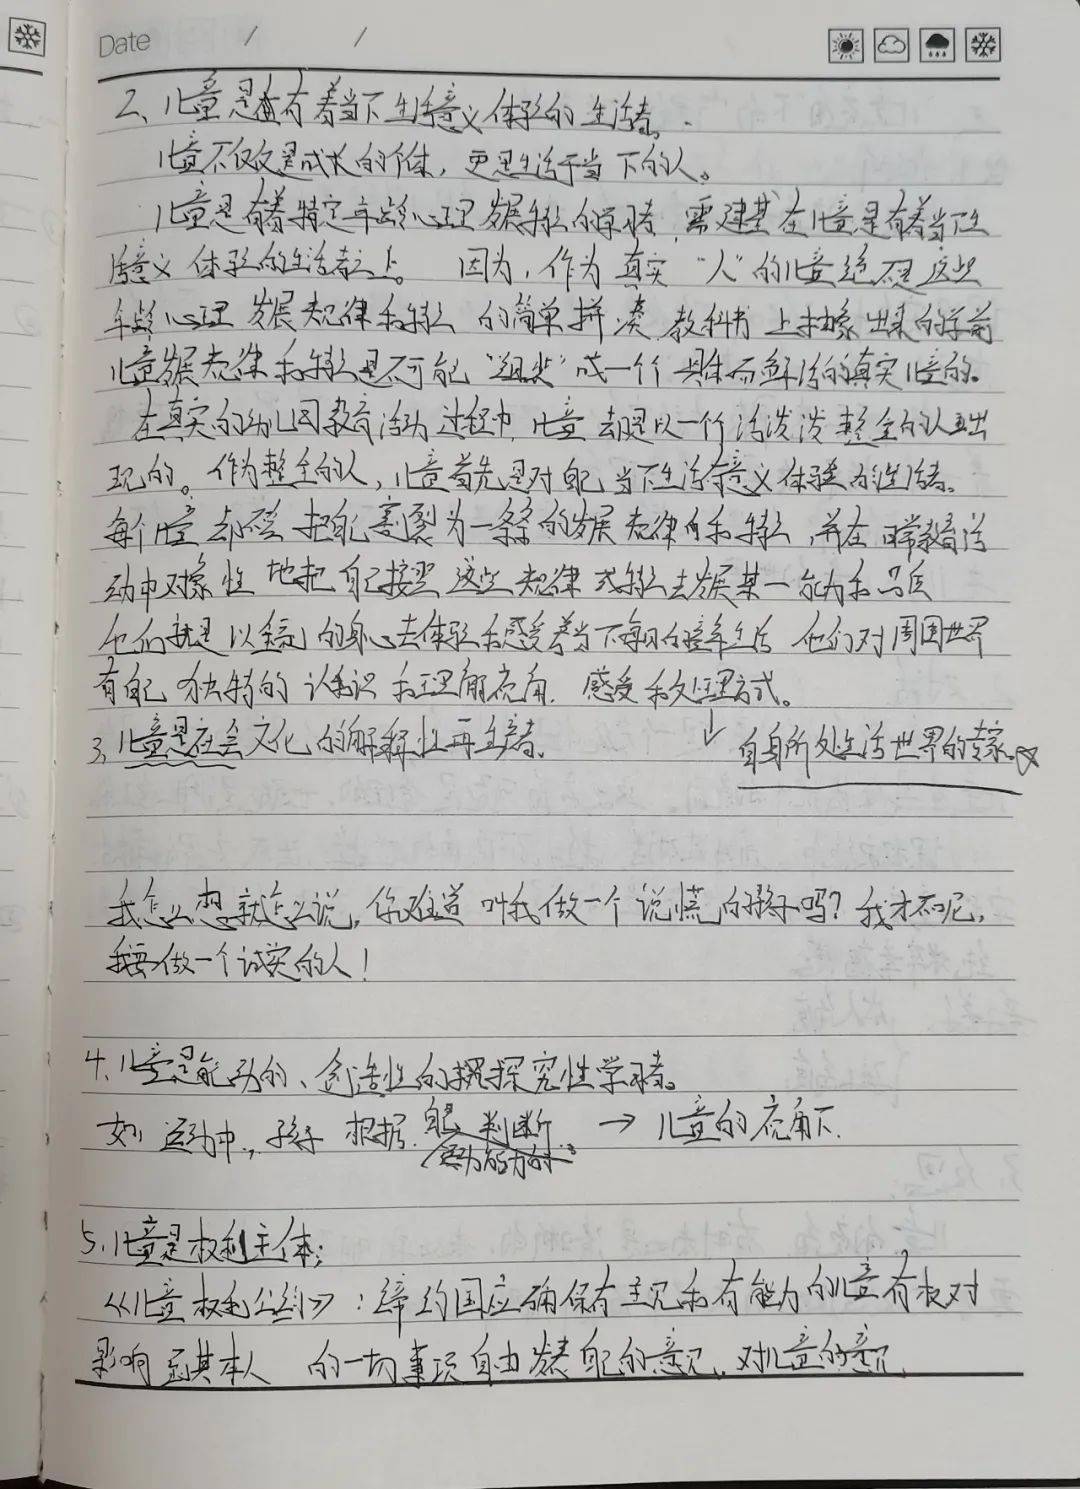 Date / /
2、儿童是富有着当下生活意义体验的生活者。
儿童不仅仅是成长的个体，更是生活于当下的人。
儿童是有着特定年龄心理发展特征的学习者，需建基在儿童是有着当下生
活意义体验的生活者之上。因为，作为真实“人”的儿童绝不是这些
年龄心理发展规律和特征的简单拼凑，教科书上抽象出来的学前
儿童发展规律和特征是不可能“组装”成一个具体而鲜活的真实儿童的。
在真实的幼儿园教育活动过程中，儿童却是以一个活泼泼整全的人呈出
现的。作为整全的人，儿童首先是对自己当下生活有意义体验的生活者。
每个儿童却不会把自己割裂为一条条的发展规律和特征，并在日常教育活
动中对象性地把自己按照这些规律或特征去发展某一能力和
他们就是以全部的身心去体验和感受着当下每日的童年生活 他们对周围世界
有自己独特的认识和理解视角、感受和处理方式。
3、儿童是社会文化的解释性再生产者。
↓ 自身所处生活世界的专家。☆
我怎么想就怎么说，你难道叫我做一个说慌的孩子吗？我才不呢，
我要做一个诚实的人！
4、儿童是能动的、创造性的探究性学习者。
如运动中，孩子根据 自己判断 → 儿童的视角下.
运动能力的
5、儿童是权利主体；
《儿童权利公约》：缔约国应确保有主见和有能力的儿童有权对
影响到其本人的一切事项自由发表自己的意见，对儿童的意见